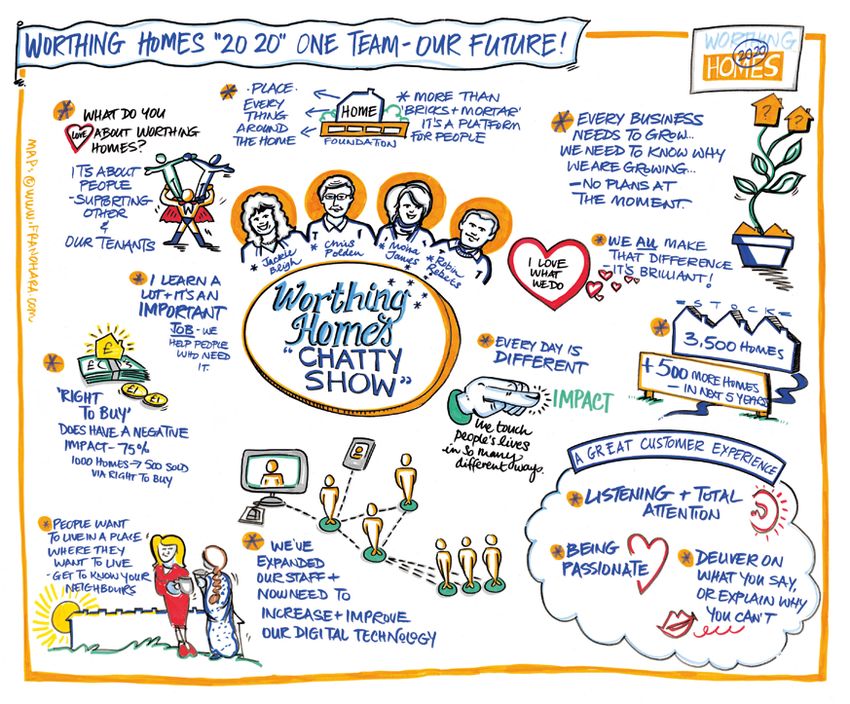 WORTHING HOMES "20 20" ONE TEAM - OUR FUTURE!
WORTHING
2020
HOMES
* WHAT DO YOU
LOVE ABOUT WORTHING
HOMES?
ITS ABOUT
PEOPLE
- SUPPORTING
OTHER
&
OUR TENANTS
W
* . PLACE .
EVERY
THING
AROUND
THE HOME
HOME
FOUNDATION
* MORE THAN
'BRICKS + MORTAR'
IT'S A PLATFORM
FOR PEOPLE
* EVERY BUSINESS
NEEDS TO GROW...
WE NEED TO KNOW WHY
WE ARE GROWING...
- NO PLANS AT
THE MOMENT.
? ?
MAP: © WWW.FRANOHARA.COM
* Jackie
Bligh
* Chris
Polden
* Moira
James
* Robin
Roberts
Worthing
Homes
"CHATTY
SHOW"
I LOVE
WHAT
WE DO
* WE ALL MAKE
THAT DIFFERENCE
- IT'S BRILLIANT!
* I LEARN A
LOT + IT'S AN
IMPORTANT
JOB - WE
HELP PEOPLE
WHO NEED
IT.
= STOCK =
3,500 HOMES
+ 500 MORE HOMES
- IN NEXT 5 YEARS
* EVERY DAY IS
DIFFERENT
IMPACT
We touch
people's lives
in so many
different ways.
£
£
£ £
*
'RIGHT
TO BUY'
DOES HAVE A NEGATIVE
IMPACT - 75%
1000 HOMES → 500 SOLD
VIA RIGHT TO BUY
A GREAT CUSTOMER EXPERIENCE
* LISTENING + TOTAL
ATTENTION
* BEING
PASSIONATE
* DELIVER ON
WHAT YOU SAY,
OR EXPLAIN WHY
YOU CAN'T
* PEOPLE WANT
TO LIVE IN A PLACE
WHERE THEY
WANT TO LIVE
- GET TO KNOW YOUR
NEIGHBOURS
* WE'VE
EXPANDED
OUR STAFF +
NOW NEED TO
INCREASE + IMPROVE
OUR DIGITAL TECHNOLOGY